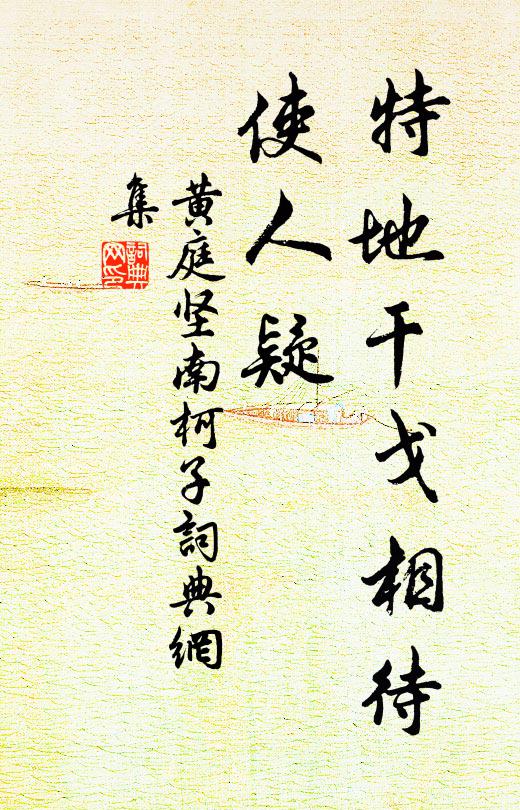 特地干戈相待
使人疑
黄庭坚南柯子詞典網
集
詞典網印